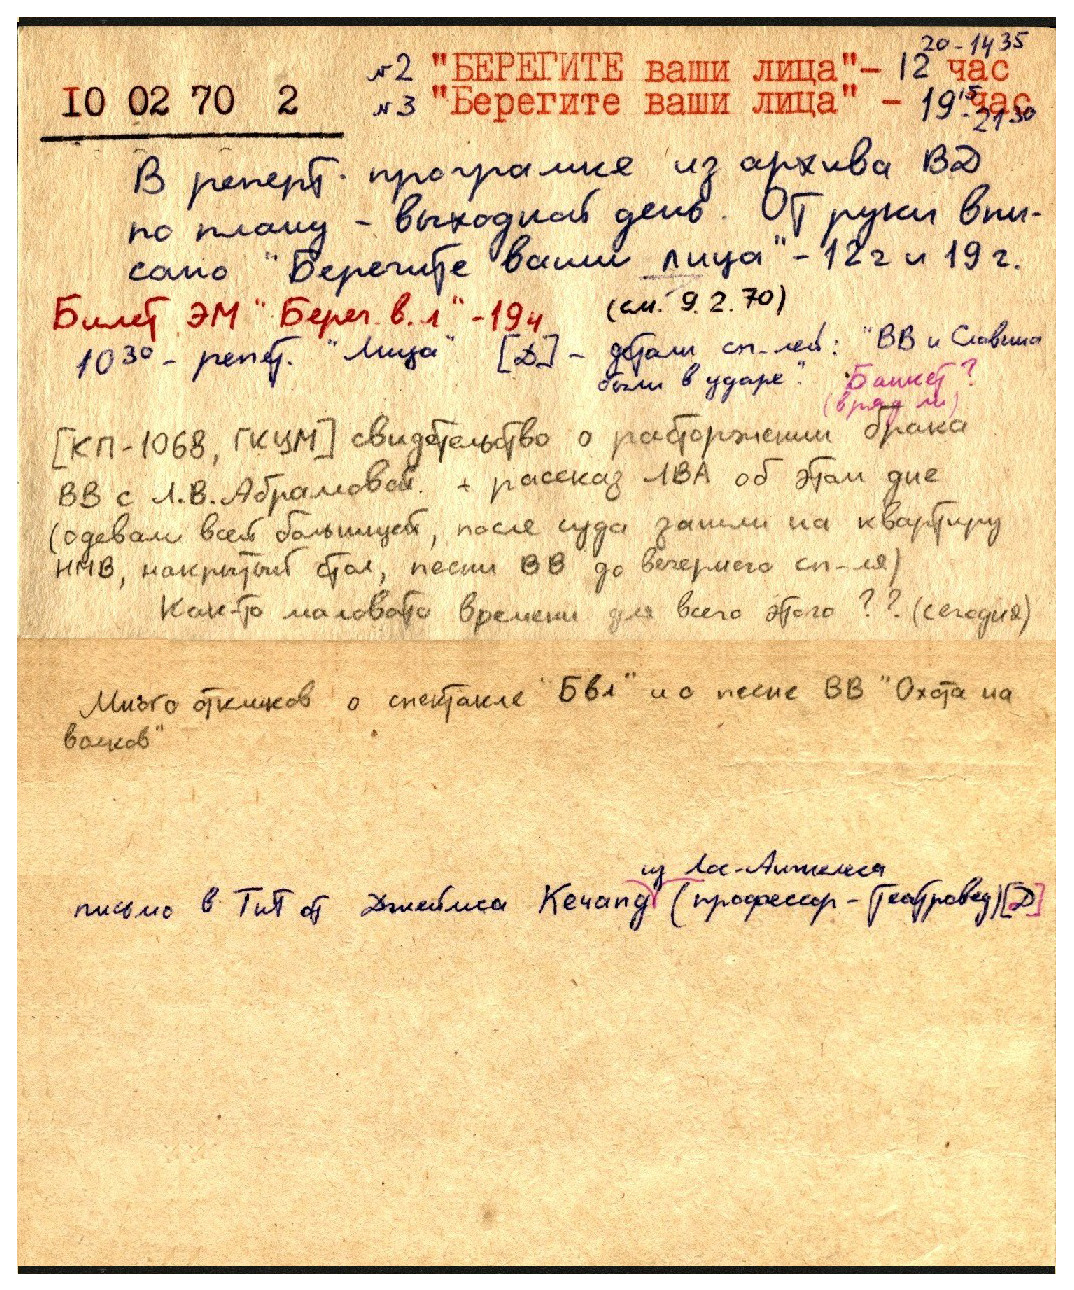 20-14 35
№2 "БЕРЕГИТЕ ваши лица"- 12 час
10 02 70 2 №3 "Берегите ваши лица" - 19 15 час
-21 30
В реперт. программке из архива ВД
по плану - выходной день. От руки впи-
сано "Берегите ваши лица" - 12 ч и 19 ч.
Билет ЭМ "Берег. в. л" - 19 ч (см. 9.2.70)
10 30 - репет. "Лица" [Д] - детали сп-лей: "ВВ и Славина
были в ударе". Банкет?
(вряд ли)
[КП-1068, ГКЦМ] свидетельство о расторжении брака
ВВ с Л.В.Абрамовой. + рассказ ЛВА об этом дне
(одевали всей больницей, после суда зашли на квартиру
НМВ, накрытый стол, песни ВВ до вечернего сп-ля)
Как-то маловато времени для всего этого ?? (сегодня)
Много откликов о спектакле "БВЛ" и о песне ВВ "Охота на
волков"
из Лос-Анжелеса
письмо в ТнТ от Джеймса Кечанд (профессор - театровед) [Д]